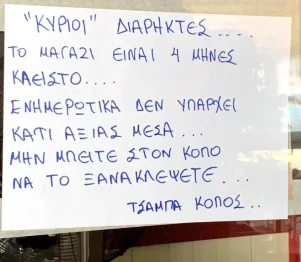 "ΚΥΡΙΟΙ" ΔΙΑΡΗΚΤΕΣ....
ΤΟ ΜΑΓΑΖΙ ΕΙΝΑΙ 4 ΜΗΝΕΣ
ΚΛΕΙΣΤΟ....
ΕΝΗΜΕΡΩΤΙΚΑ ΔΕΝ ΥΠΑΡΧΕΙ
ΚΑΤΙ ΑΞΙΑΣ ΜΕΣΑ...
ΜΗΝ ΜΠΕΙΤΕ ΣΤΟΝ ΚΟΠΟ
ΝΑ ΤΟ ΞΑΝΑΚΛΕΨΕΤΕ...
ΤΣΑΜΠΑ ΚΟΠΟΣ..